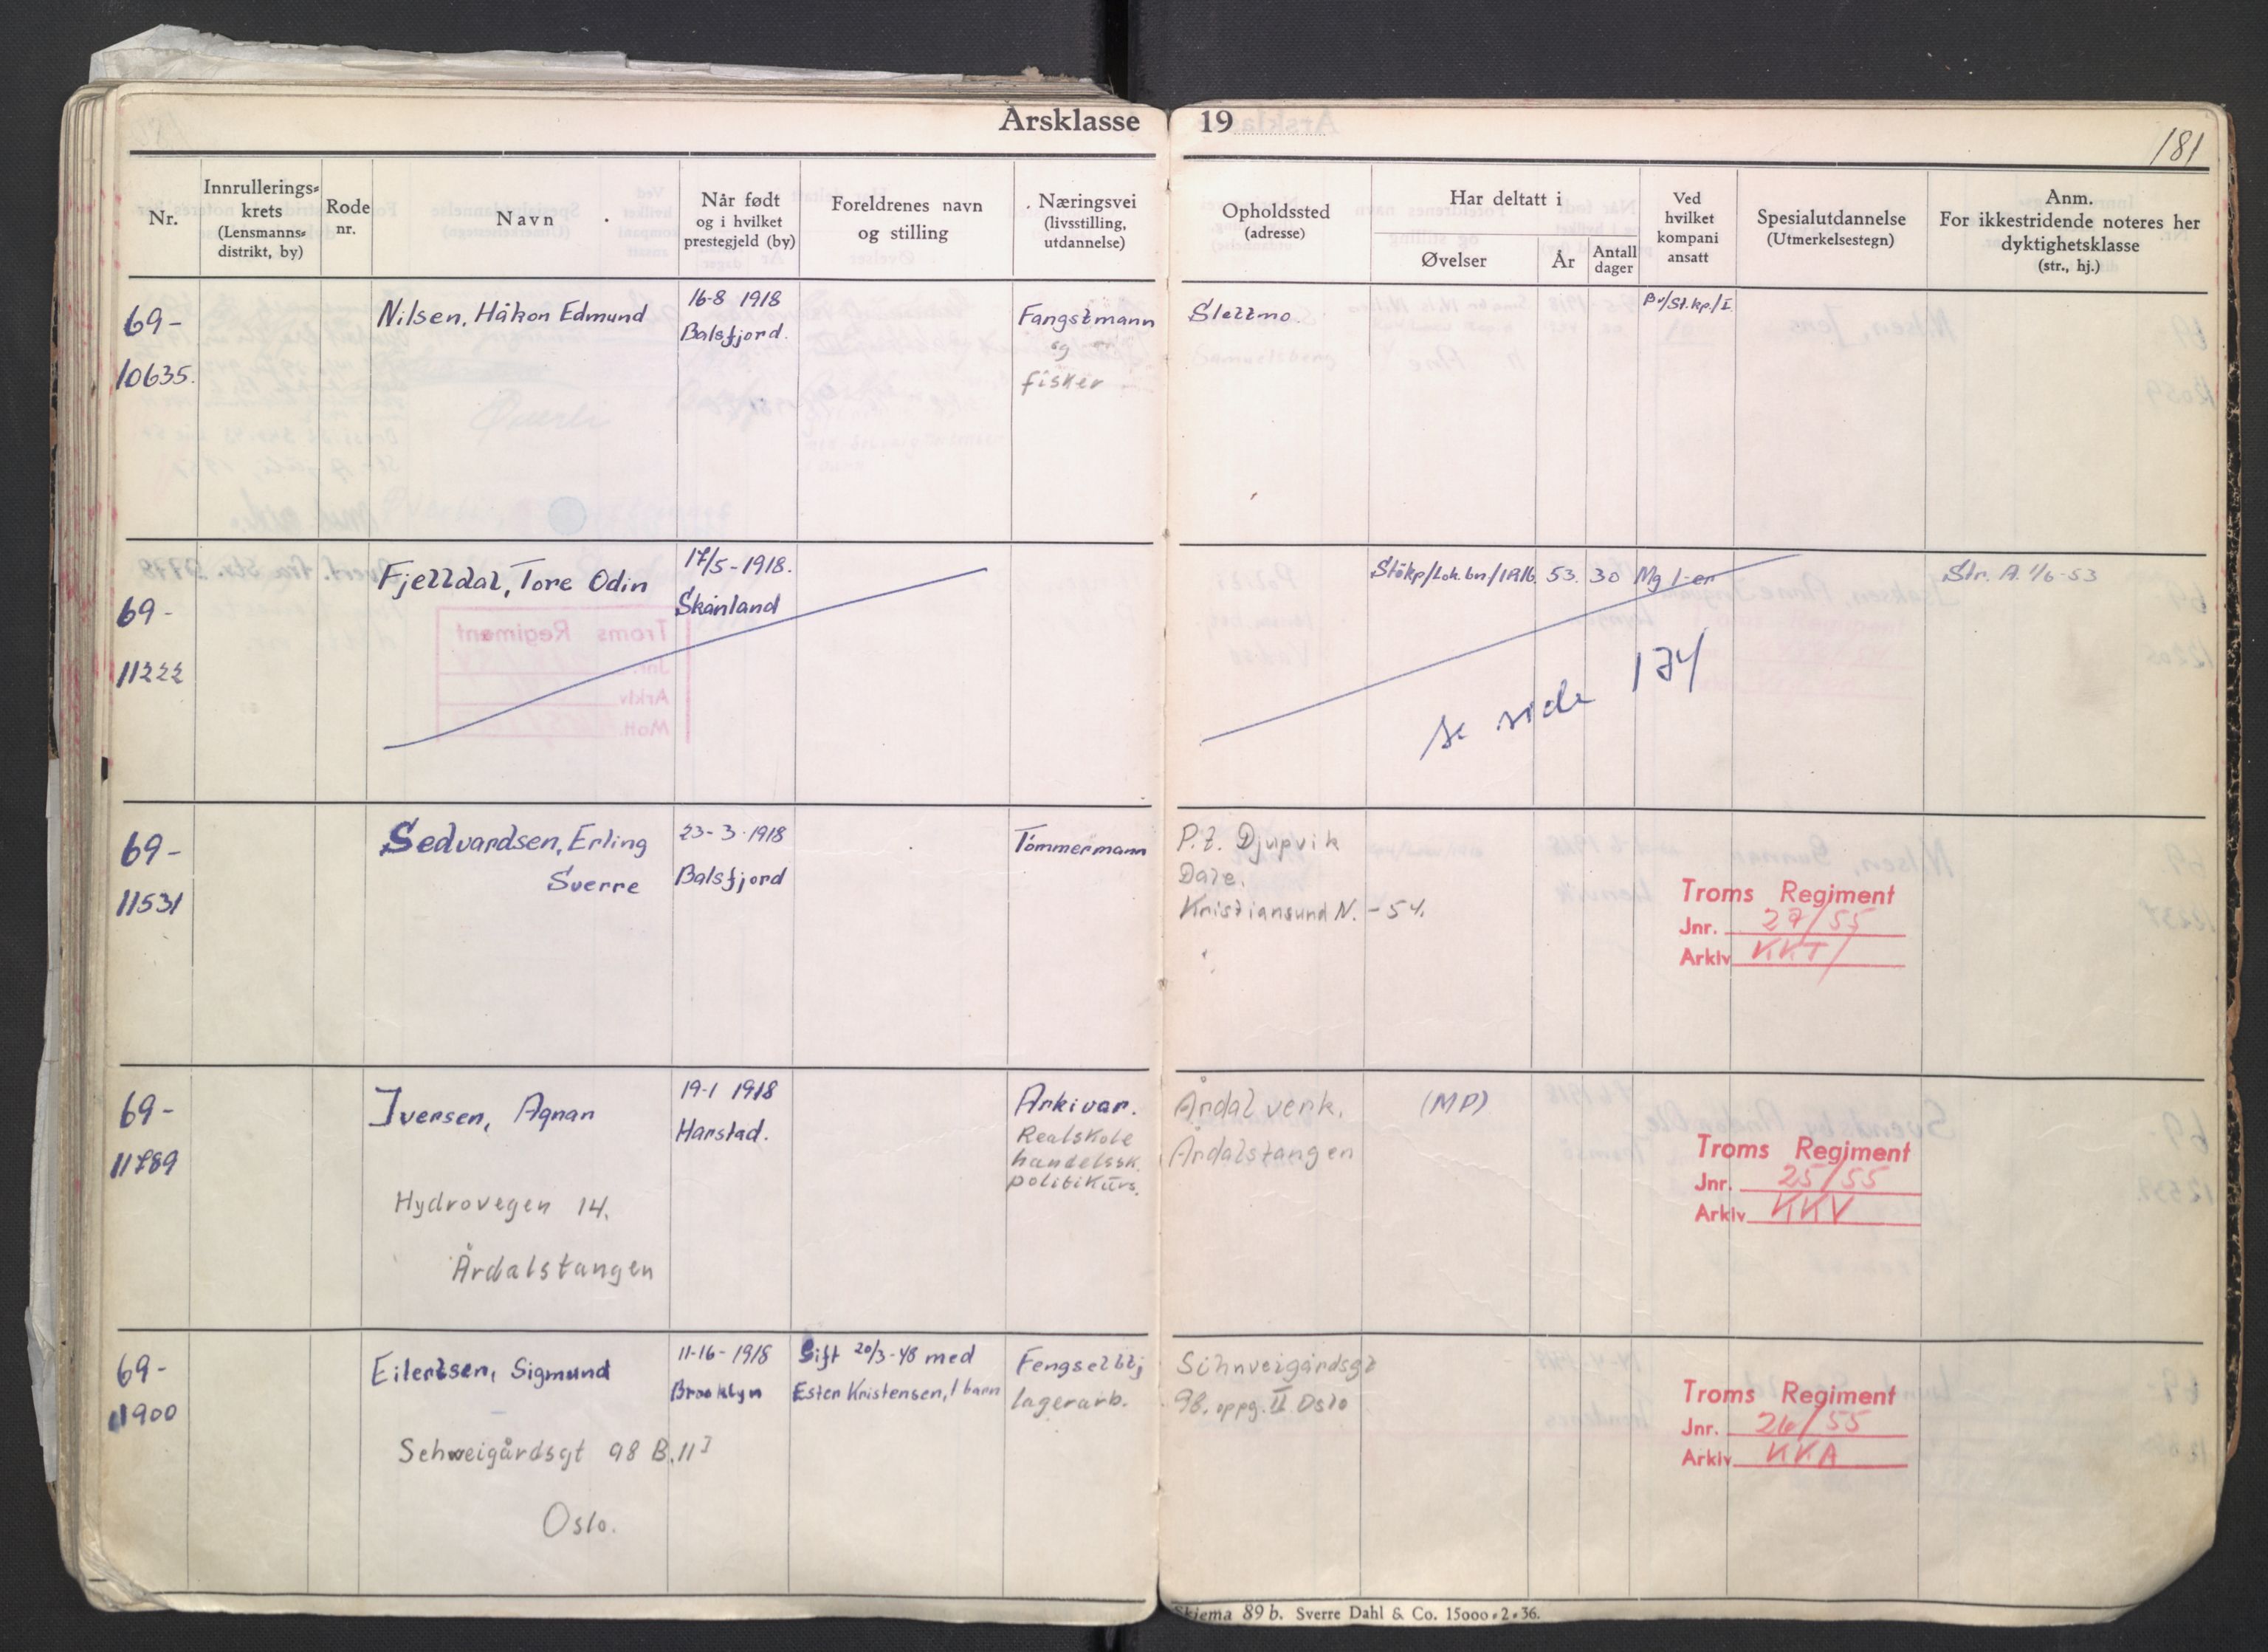 Årsklasse 19
181
Nr.
Innrullerings-
krets
(Lensmanns-
distrikt, by)
Rode
nr.
Navn
Når født
og i hvilket
prestegjeld (by)
Foreldrenes navn
og stilling
Næringsvei
(livsstilling,
utdannelse)
Opholdssted
(adresse)
Har deltatt i
Øvelser
År
Antall
dager
Ved
hvilket
kompani
ansatt
Spesialutdannelse
(Utmerkelsestegn)
Anm.
For ikkestridende noteres her
dyktighetsklasse
(str., hj.)
69-
10635.
Nilsen, Håkon Edmund
16-8 1918
Balsfjord.
Fangstmann
og
fisker
Slettmo.
Bv/St.kp./I
69-
11222
Fjelldal, Tore Odin
17/5-1918.
Skånland
Stökp/Lok.bn/IR16. 53. 30 Mg 1-er
Str. A. 1/6-53
se side 174
69-
11531
Sedvardsen, Erling
Sverre
23-3-1918
Balsfjord
Tömmermann
P.t. Djupvik
Dale.
Kristiansund N. -54.
Troms Regiment
Jnr. 27/55
Arkiv KKT/
69-
11789
Iversen, Agnar
19-1 1918
Harstad.
Hydrovegen 14.
Årdalstangen
Arkivar.
Realskole
handelssk.
politikurs.
Årdal verk.
Årdalstangen
(MP)
Troms Regiment
Jnr. 25/55
Arkiv KKV
69-
11900
Eilertsen, Sigmund
11-16-1918
Brooklyn
Gift 20/3-48 med
Ester Kristensen, 1 barn
Fengselbtj
lagerarb.
98. oppg. II Oslo
Schweigårdsgt 98 B.
Oslo.
Troms Regiment
Jnr. 26/55
Arkiv KKA
Skjema 89 b. Sverre Dahl & Co. 15000-2-36.